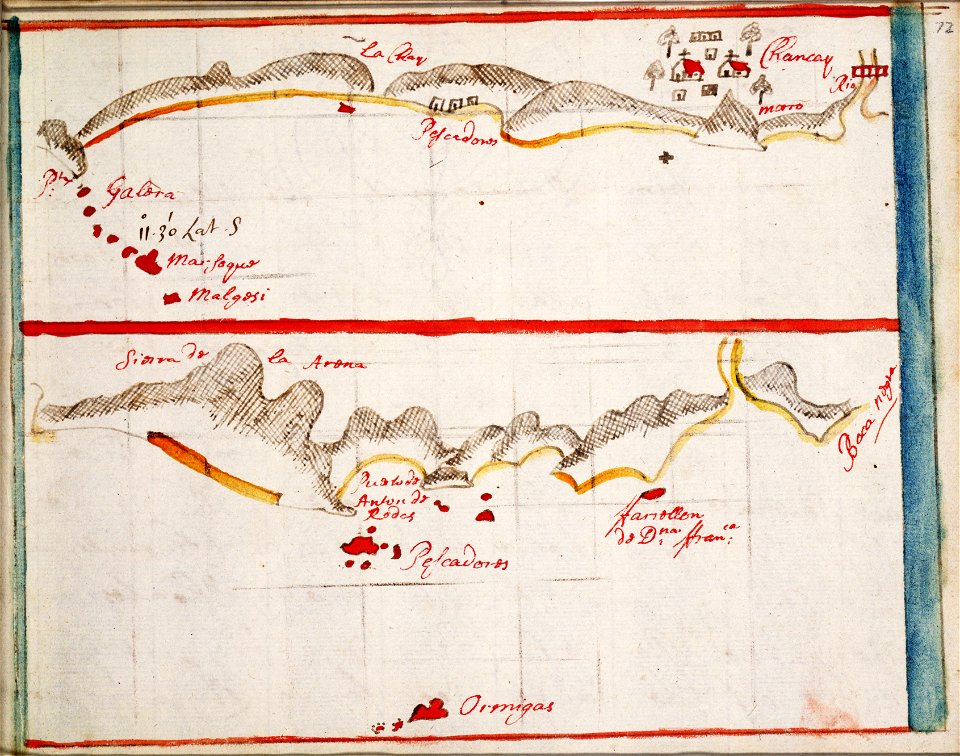 72
La Chay
Chancay
Rio
Pescadores
moro
Pta
Galera
11°.30' Lat. S
Mas-foque
Malgesi
Sierra de la Arena
Boca negra
Puerto de
Anton de
Rodes
farellon
de Dna. ffranca:
Pescadores
Ormigas